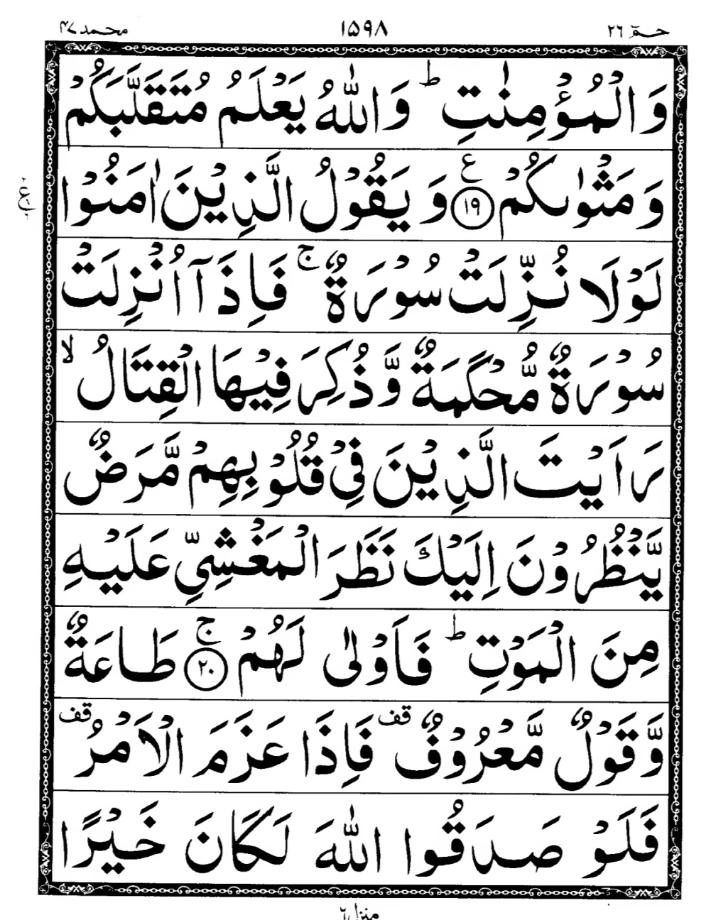 حٰمٓ ٢٦ ١٥٩٨ محمد ٤٧
وَالْمُؤْمِنٰتِ ؕ وَاللّٰهُ يَعْلَمُ مُتَقَلَّبَكُمْ
وَمَثْوٰىكُمْ ۧ ﴿١٩﴾ وَيَقُوْلُ الَّذِيْنَ اٰمَنُوْا
لَوْلَا نُزِّلَتْ سُوْرَةٌ ۚ فَاِذَاۤ اُنْزِلَتْ
سُوْرَةٌ مُّحْكَمَةٌ وَّذُكِرَ فِيْهَا الْقِتَالُ ۙ
رَاَيْتَ الَّذِيْنَ فِيْ قُلُوْبِهِمْ مَّرَضٌ
يَّنْظُرُوْنَ اِلَيْكَ نَظَرَ الْمَغْشِيِّ عَلَيْهِ
مِنَ الْمَوْتِ ؕ فَاَوْلٰى لَهُمْ ۚ ﴿٢٠﴾ طَاعَةٌ
وَّقَوْلٌ مَّعْرُوْفٌ قف فَاِذَا عَزَمَ الْاَمْرُ قف
فَلَوْ صَدَقُوا اللّٰهَ لَكَانَ خَيْرًا
منزل ٦